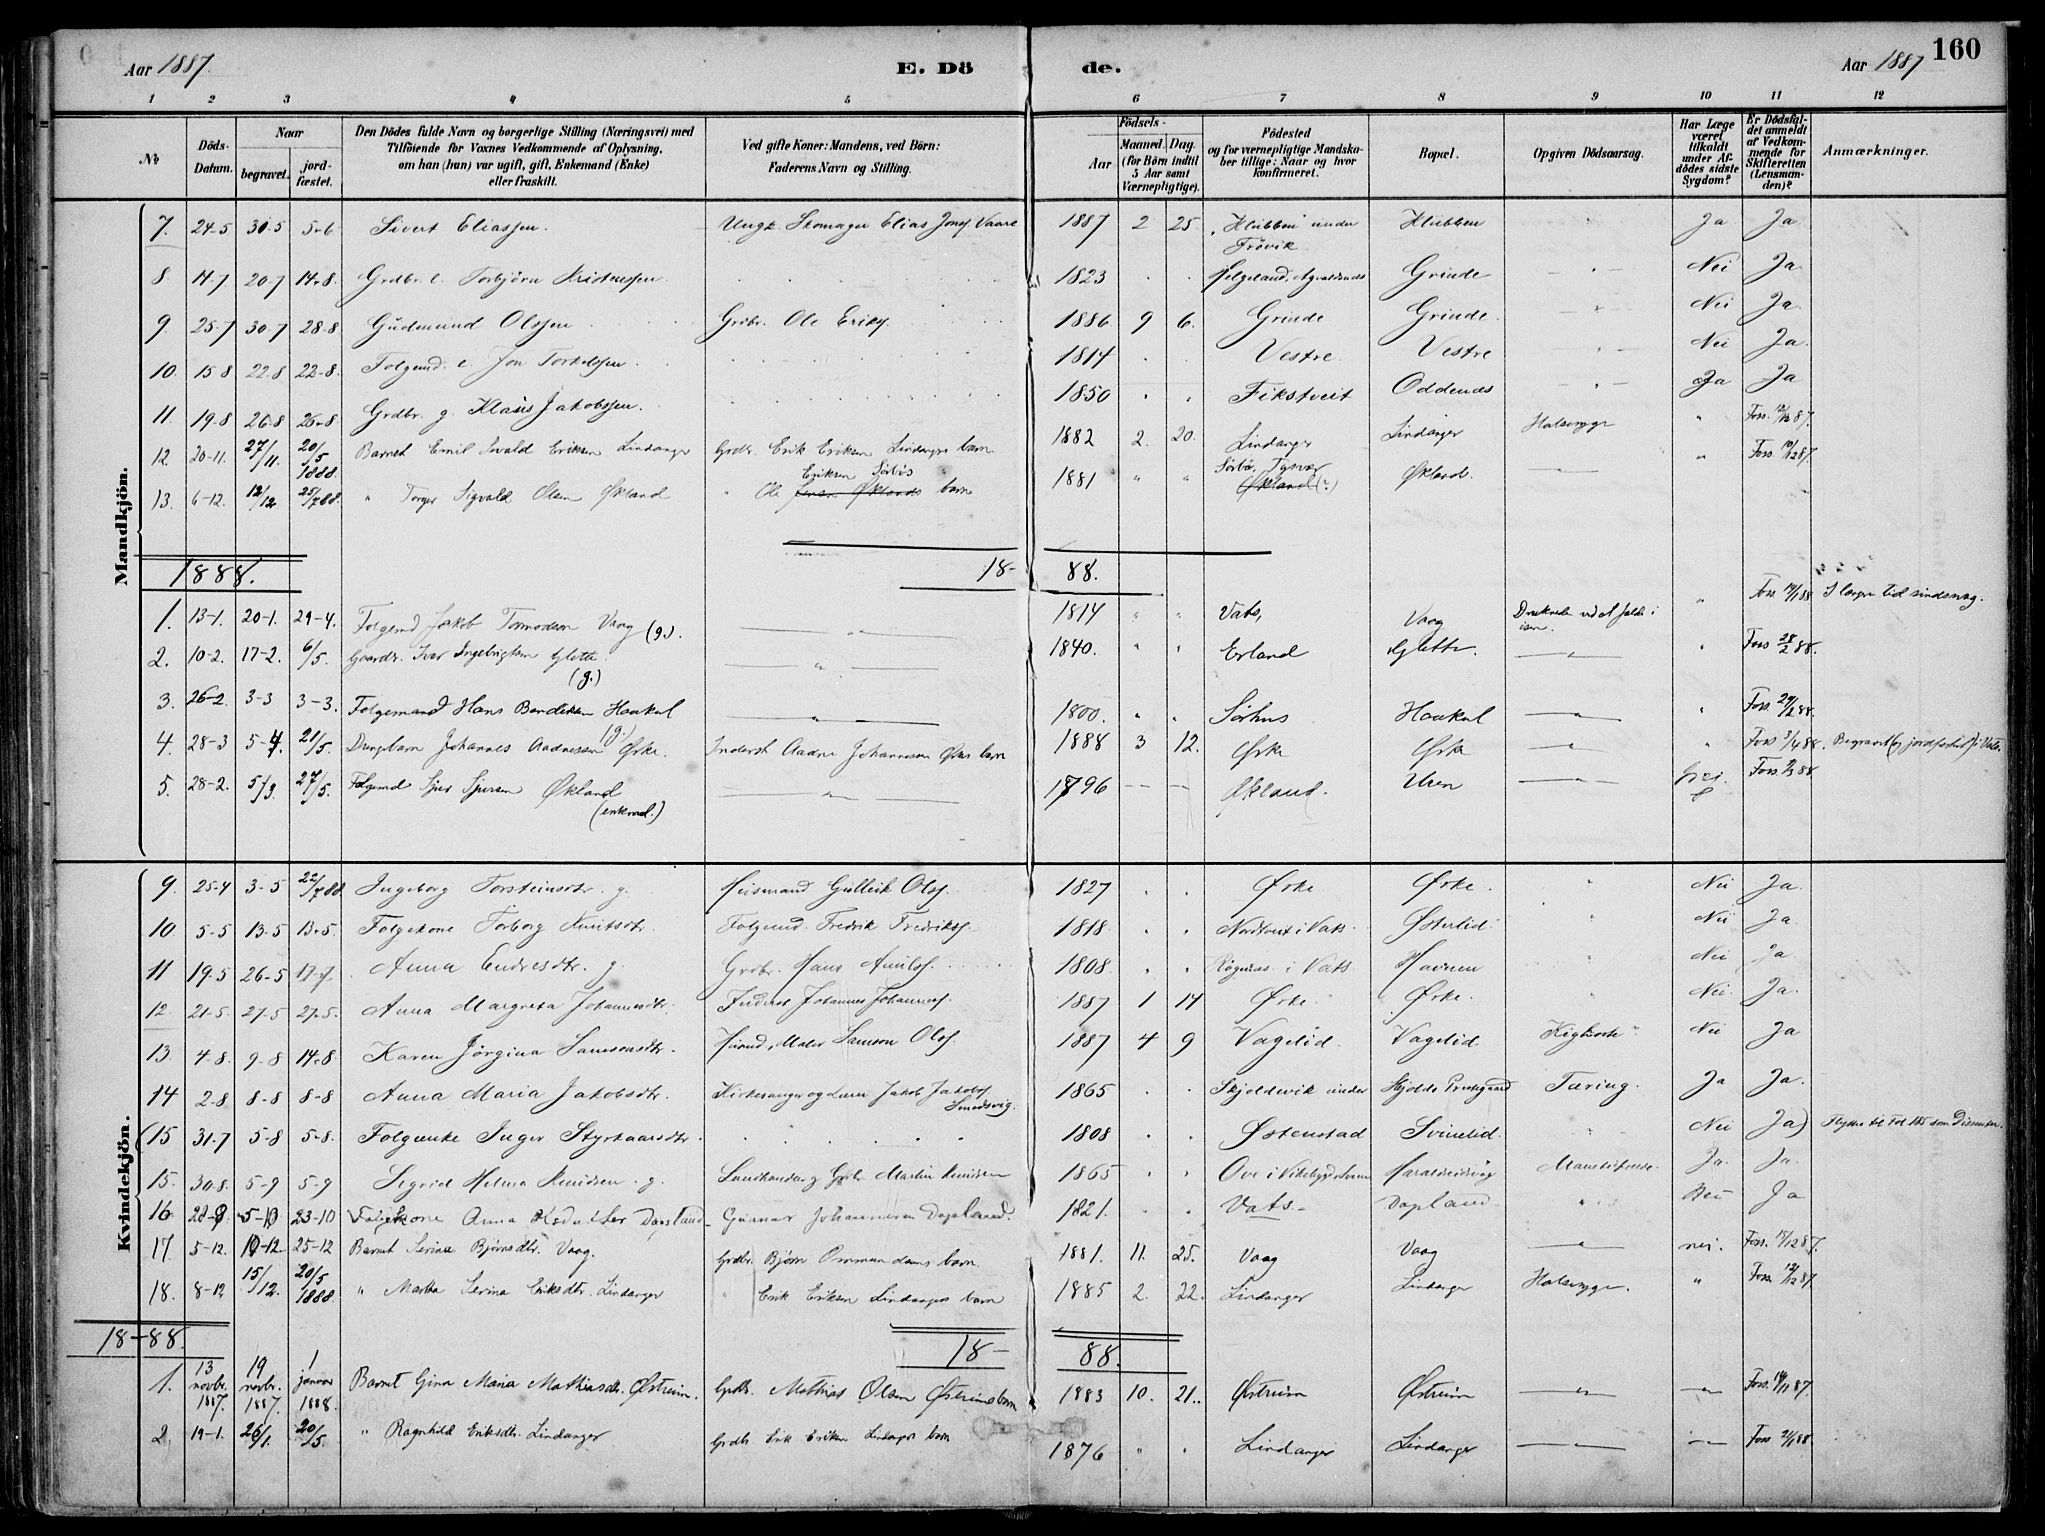 Aar 1887
E. Dö
de.
Aar 1887
160
1 2 3 4 5 6 7 8 9 10 11 12
No
Döds-Datum.
Naar
begravet.
jord-fæstet.
Den Dödes fulde Navn og borgerlige Stilling (Næringsvei) med
Tilföiende for Voxnes Vedkommende af Oplysning,
om han (hun) var ugift, gift, Enkemand (Enke)
eller fraskilt.
Ved gifte Koner: Mandens, ved Börn:
Faderens Navn og Stilling.
Födsels-
Aar
Maaned. Dag.
(for Börn indtil
5 Aar samt
Værnepligtige).
Födested
og for værnepligtige Mandska-
ber tillige: Naar og hvor
konfirmeret.
Bopæl.
Opgiven Dödsaarsag.
Har Læge
været
tilkaldt
under Af-
dödes sidste
Sygdom?
Er Dödsfal-
det anmeldt
af Vedkom-
mende for
Skifteretten
(Lensman-
den)?
Anmærkninger.
Mandkjön.
7. 24-5 30-5 5-6 Sivert Eliassen. Ungk. Skomager Elias Jonss. Vaare 1887 2 25 Klubben under Frövik Klubben Ja Ja
8 14-7 20-7 14-8 Grdbr. e. Torbjörn Kristenssen 1823 Helgeland, Grinde Nei Ja
9. 25-7 30-7 28-8 Gudmund Olssen Grdbr. Ole Eriks. 1886 9 6. Grinde Grinde Nei Ja.
10. 15-8 22-8 22-8. Folgemd. e. Jon Torkelssen 1814 Vestre Vestre Nei Ja.
11. 19-8 26-8 26-8. Grdbr. g. Klaus Jakobssen. 1850 Fikstveit Oddenes Ja Ja
12. 20-11. 27/11. 20/5 1888. Barnet Emil Sevald Eriksen Lindanger Grdbr. Erik Eriksen Lindangers barn 1882 2. 20. Lindanger Lindanger Halssyge " Foss. 12/12 87.
13. 6-12. 12/12 25/7 88. " Torger Sigvald Olsen Økland " Ole Eriksen Sörbös barn 1881 " " Sörbö, Tysvær Økland. " Foss. 10/12 87.
1888. 18-88.
1. 13-1. 20-1. 29-4. Folgemd Jakob Tormodsen Vaag (g.). 1814 " " Vats, Vaag Druknede ved at falde i isen. " Foss 14/1 88 I længre tid sindssvag.
2. 10-2. 17-2. 6/5. Gaardbr. Iver Ingebrigtsen Glette. (g.) 1840. " " Erland Glette. " Foss 28/2 88.
3. 26-2. 3-3 3-3. Folgemand Hans Bendiksen Haakul (g.) 1800. " " Sörhus Haakul " Foss. 29/2 88.
4. 28-3 5-4. 21/5. Drengbarn Johannes Aadnesen Ørke. Inderst Aadne Johannesen Ørkes barn 1888 3 12. Ørke Ørke " Foss 3/4 88. Begravet (og jordfæstet) i Vats.
5. 28-2. 5/3. 27/5. Folgemd Sjur Sjursen Økland (enkemd.) 1796 Økland. Uren Nei. Foss 2/3 88
Kvindekjön.
9. 25-4 3-5 22/7 88 Ingeborg Torsteinsdtr. g. Huismand Gulleik Olss. 1827 Ørke Ørke. Nei Ja.
10. 5-5 13-5 13-5. Folgekone Torborg Knutsdtr. Folgemd. Fredrik Fredrikss. 1818 Nordtveit i Vats Østerlid. Nei Ja
11 19-5 26-5 17-7. Anna Endresdtr. g. Grdbr. Hans 1808. i Vats Havnen Nei Ja
12. 21-5. 27-5 27-5. Anna Margreta Johannesdtr. Inderst Johannes Johanness. 1887 1 14 Ørke. Ørke. Nei. Ja.
13. 4-8. 9-8 14-8. Karen Jörgina Samsonsdtr. Huusmd., Maler Samson Olss. 1887 4 9 Vagelid. Vagelid. Kighoste Nei Ja
14 2-8 8-8 8-8 Anna Maria Jakobsdtr. Kirkesanger og Lærer Jakob Jakobss. Smedsvig. 1865 Skjoldevik under Skjolds Prestegaard Tæring. Ja Ja.
(15 31-7 5-8 5-8. Folgeenke Inger Styrkaarsdtr. 1808 Østenstad Svinelid Nei Ja) Flyttes til Fol. 185 som Dissenter.
15. 30-8. 5-9 5-9 Sigrid Helena Knudsen. g. Landhandar. Martin Knudsen 1865 Ove i Vikebygd Haraldseidvåg Ja. Ja.
16 28-9 5-10 23-10 Folgekone Anna Dapsland Gunnar Johannesen Dapsland. 1821. Vats. Dapland Nei Ja
17. 5-12. 10-12 25-12 Barnet Serina Bjørnsdtr. Vaag. Grdbr. Bjørn Ommundsens barn. 1881. 11. 25. Vaag Vaag nei. Foss. 17/12 87.
18. 8-12 15/12. 20/5 1888. " Marta Serina Eriksdtr. Lindanger " Erik Eriksen Lindangers barn 1885 2. 22. Lindanger Lindanger Halssyge. " Foss 12/12 87.
18-88. 18-88.
1. 13 novbr. 1887. 19 novbr. 1887. 1 januar 1888. Barnet Gina Maria Mathiasdtr. Østreim. Grdbr. Mathias Olsen Østreims barn 1883 10. 21. Østreim Østreim Foss. 14/11 87.
2. 19-1. 26/1. 20/5. " Ragnhild Eriksdtr. Lindanger Grdbr Erik Eriksen Lindangers barn 1876 " " Lindanger Lindanger Foss 21/1 88.